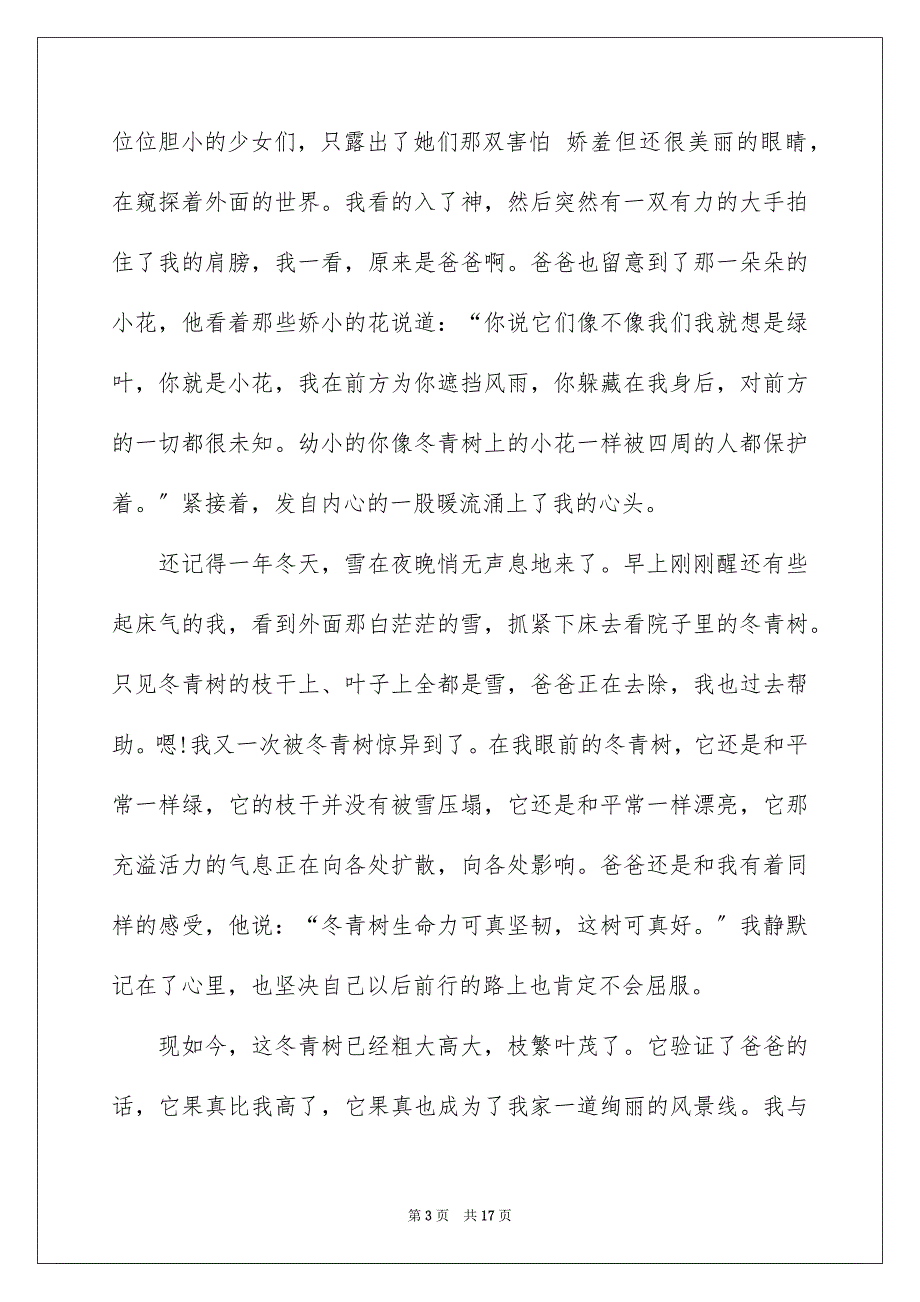 位位胆小的少女们，只露出了她们那双害怕 娇羞但还很美丽的眼睛，
在窥探着外面的世界。我看的入了神，然后突然有一双有力的大手拍
住了我的肩膀，我一看，原来是爸爸啊。爸爸也留意到了那一朵朵的
小花，他看着那些娇小的花说道：“你说它们像不像我们我就想是绿
叶，你就是小花，我在前方为你遮挡风雨，你躲藏在我身后，对前方
的一切都很未知。幼小的你像冬青树上的小花一样被四周的人都保护
着。〞紧接着，发自内心的一股暖流涌上了我的心头。
还记得一年冬天，雪在夜晚悄无声息地来了。早上刚刚醒还有些
起床气的我，看到外面那白茫茫的雪，抓紧下床去看院子里的冬青树。
只见冬青树的枝干上、叶子上全都是雪，爸爸正在去除，我也过去帮
助。嗯!我又一次被冬青树惊异到了。在我眼前的冬青树，它还是和平
常一样绿，它的枝干并没有被雪压塌，它还是和平常一样漂亮，它那
充溢活力的气息正在向各处扩散，向各处影响。爸爸还是和我有着同
样的感受，他说：“冬青树生命力可真坚韧，这树可真好。〞我静默
记在了心里，也坚决自己以后前行的路上也肯定不会屈服。
现如今，这冬青树已经粗大高大，枝繁叶茂了。它验证了爸爸的
话，它果真比我高了，它果真也成为了我家一道绚丽的风景线。我与
第 3 页 共 17 页